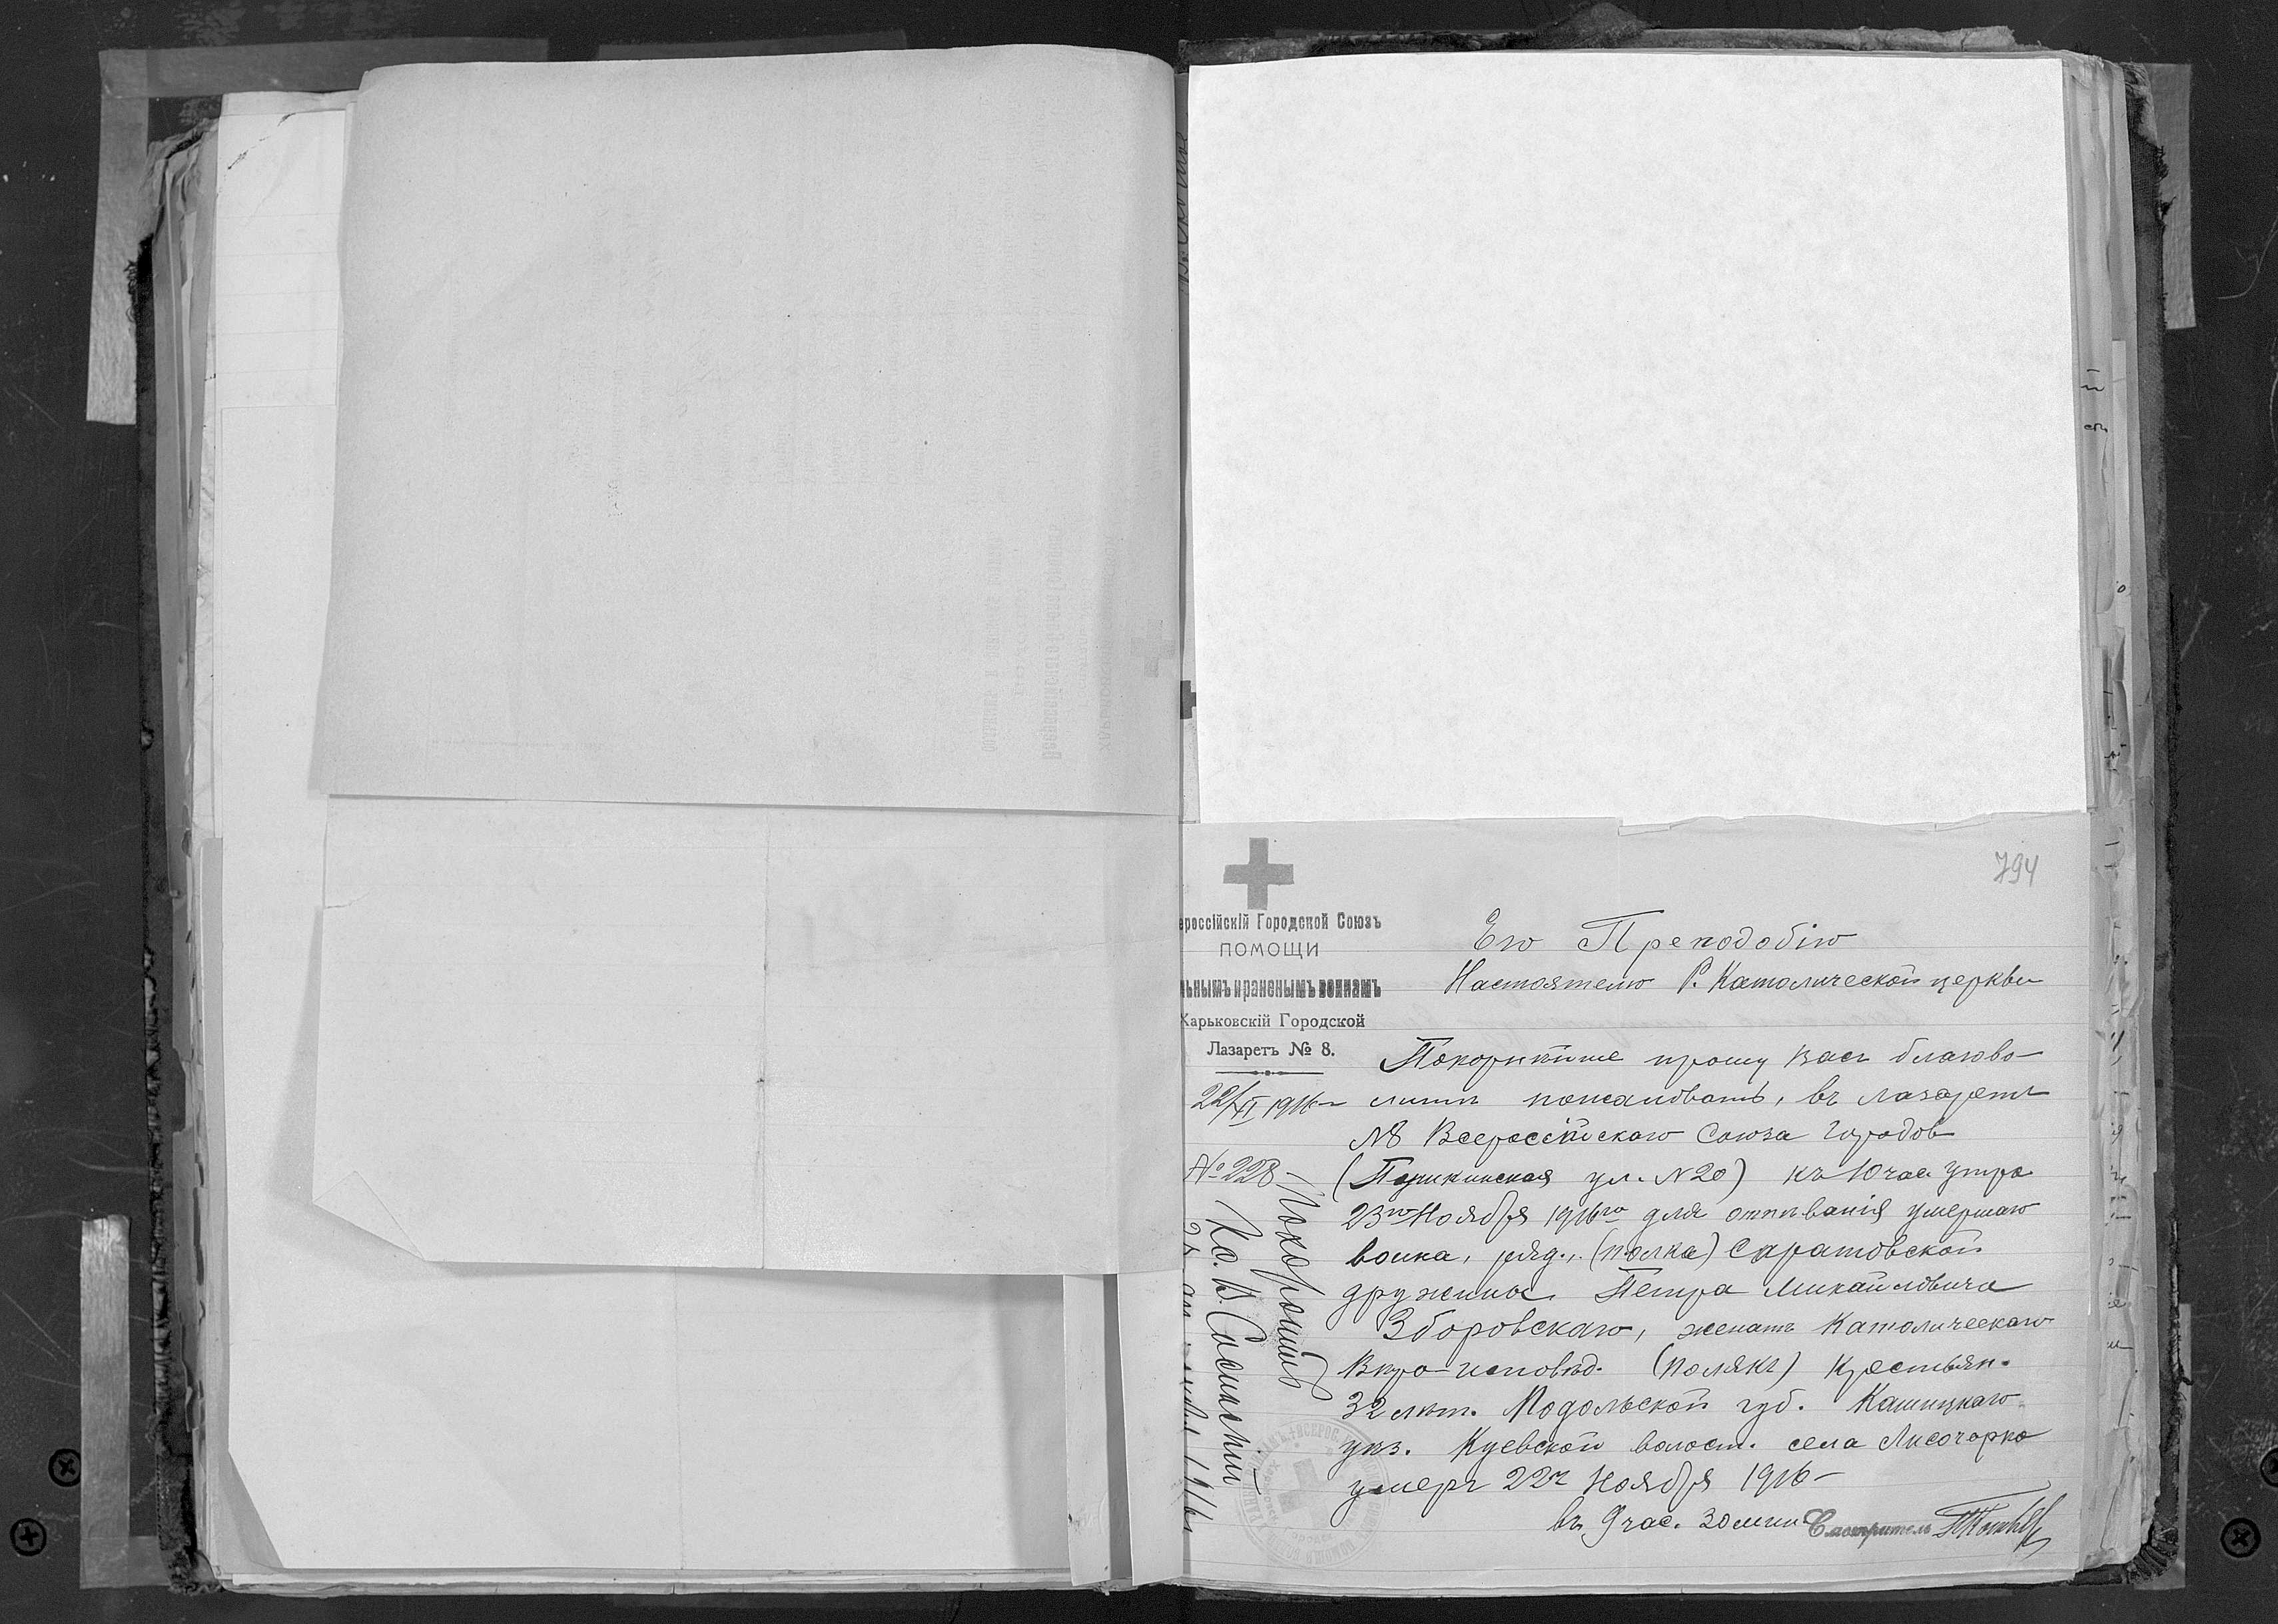 794
ероссійскій Городской Союзъ
ПОМОЩИ
льнымъ и раненымъ воинамъ
Харьковскій Городской
Лазаретъ № 8.
22/XI 1916
№ 228
Его Преподобію
Настоятелю Р. Католической церкви
Покорнѣйше прошу Васъ благово-
лить пожаловать, въ лазаретъ
№8 Всероссійскаго Союза Городовъ
(Пушкинская ул. №20) къ 10 час утра
23го Ноября 1916го для отпѣванія умершаго
воина, ряд., (полка) Саратовской
дружины Петра Михайловича
Зборовскаго, женатъ Католическаго
Вѣроисповѣд. (полякъ) крестьян.
32 лѣт. Подольской губ.
уѣз. волост. села
умеръ 22го Ноября 1916
въ 9 час. 30 мин
Смотритель
Похоронилъ
Кс.
1916